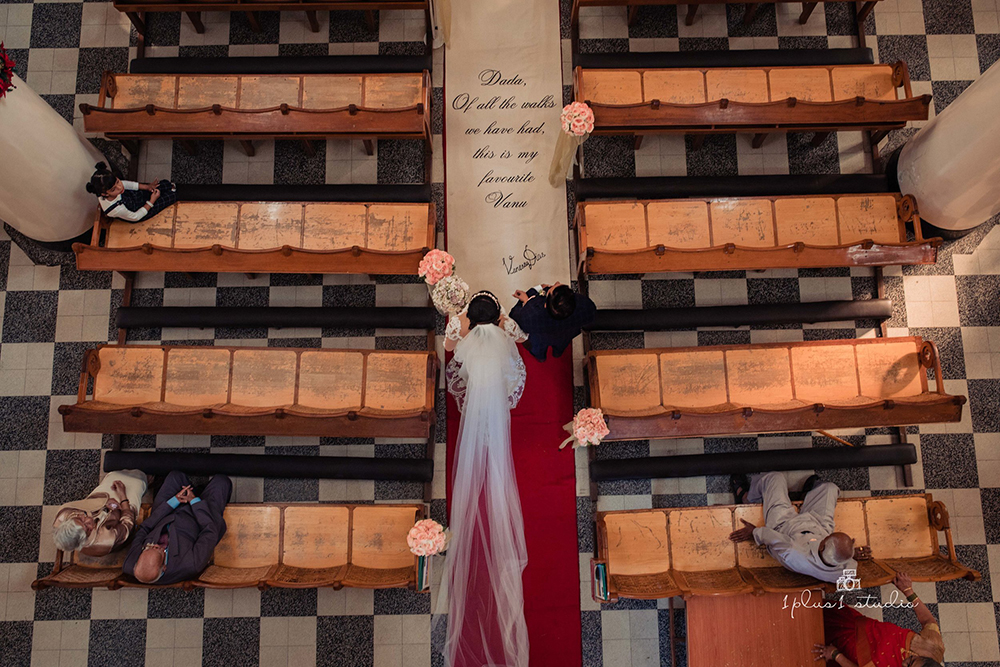 Dada,
Of all the walks
we have had,
this is my
favourite
Vanu
Vanessa Dias
1plus1 studio